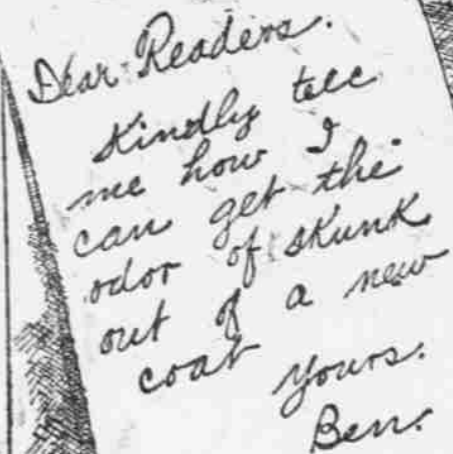 Dear Readers.
Kindly tell
me how I
can get the
odor of skunk
out of a new
coat
yours.
Ben.